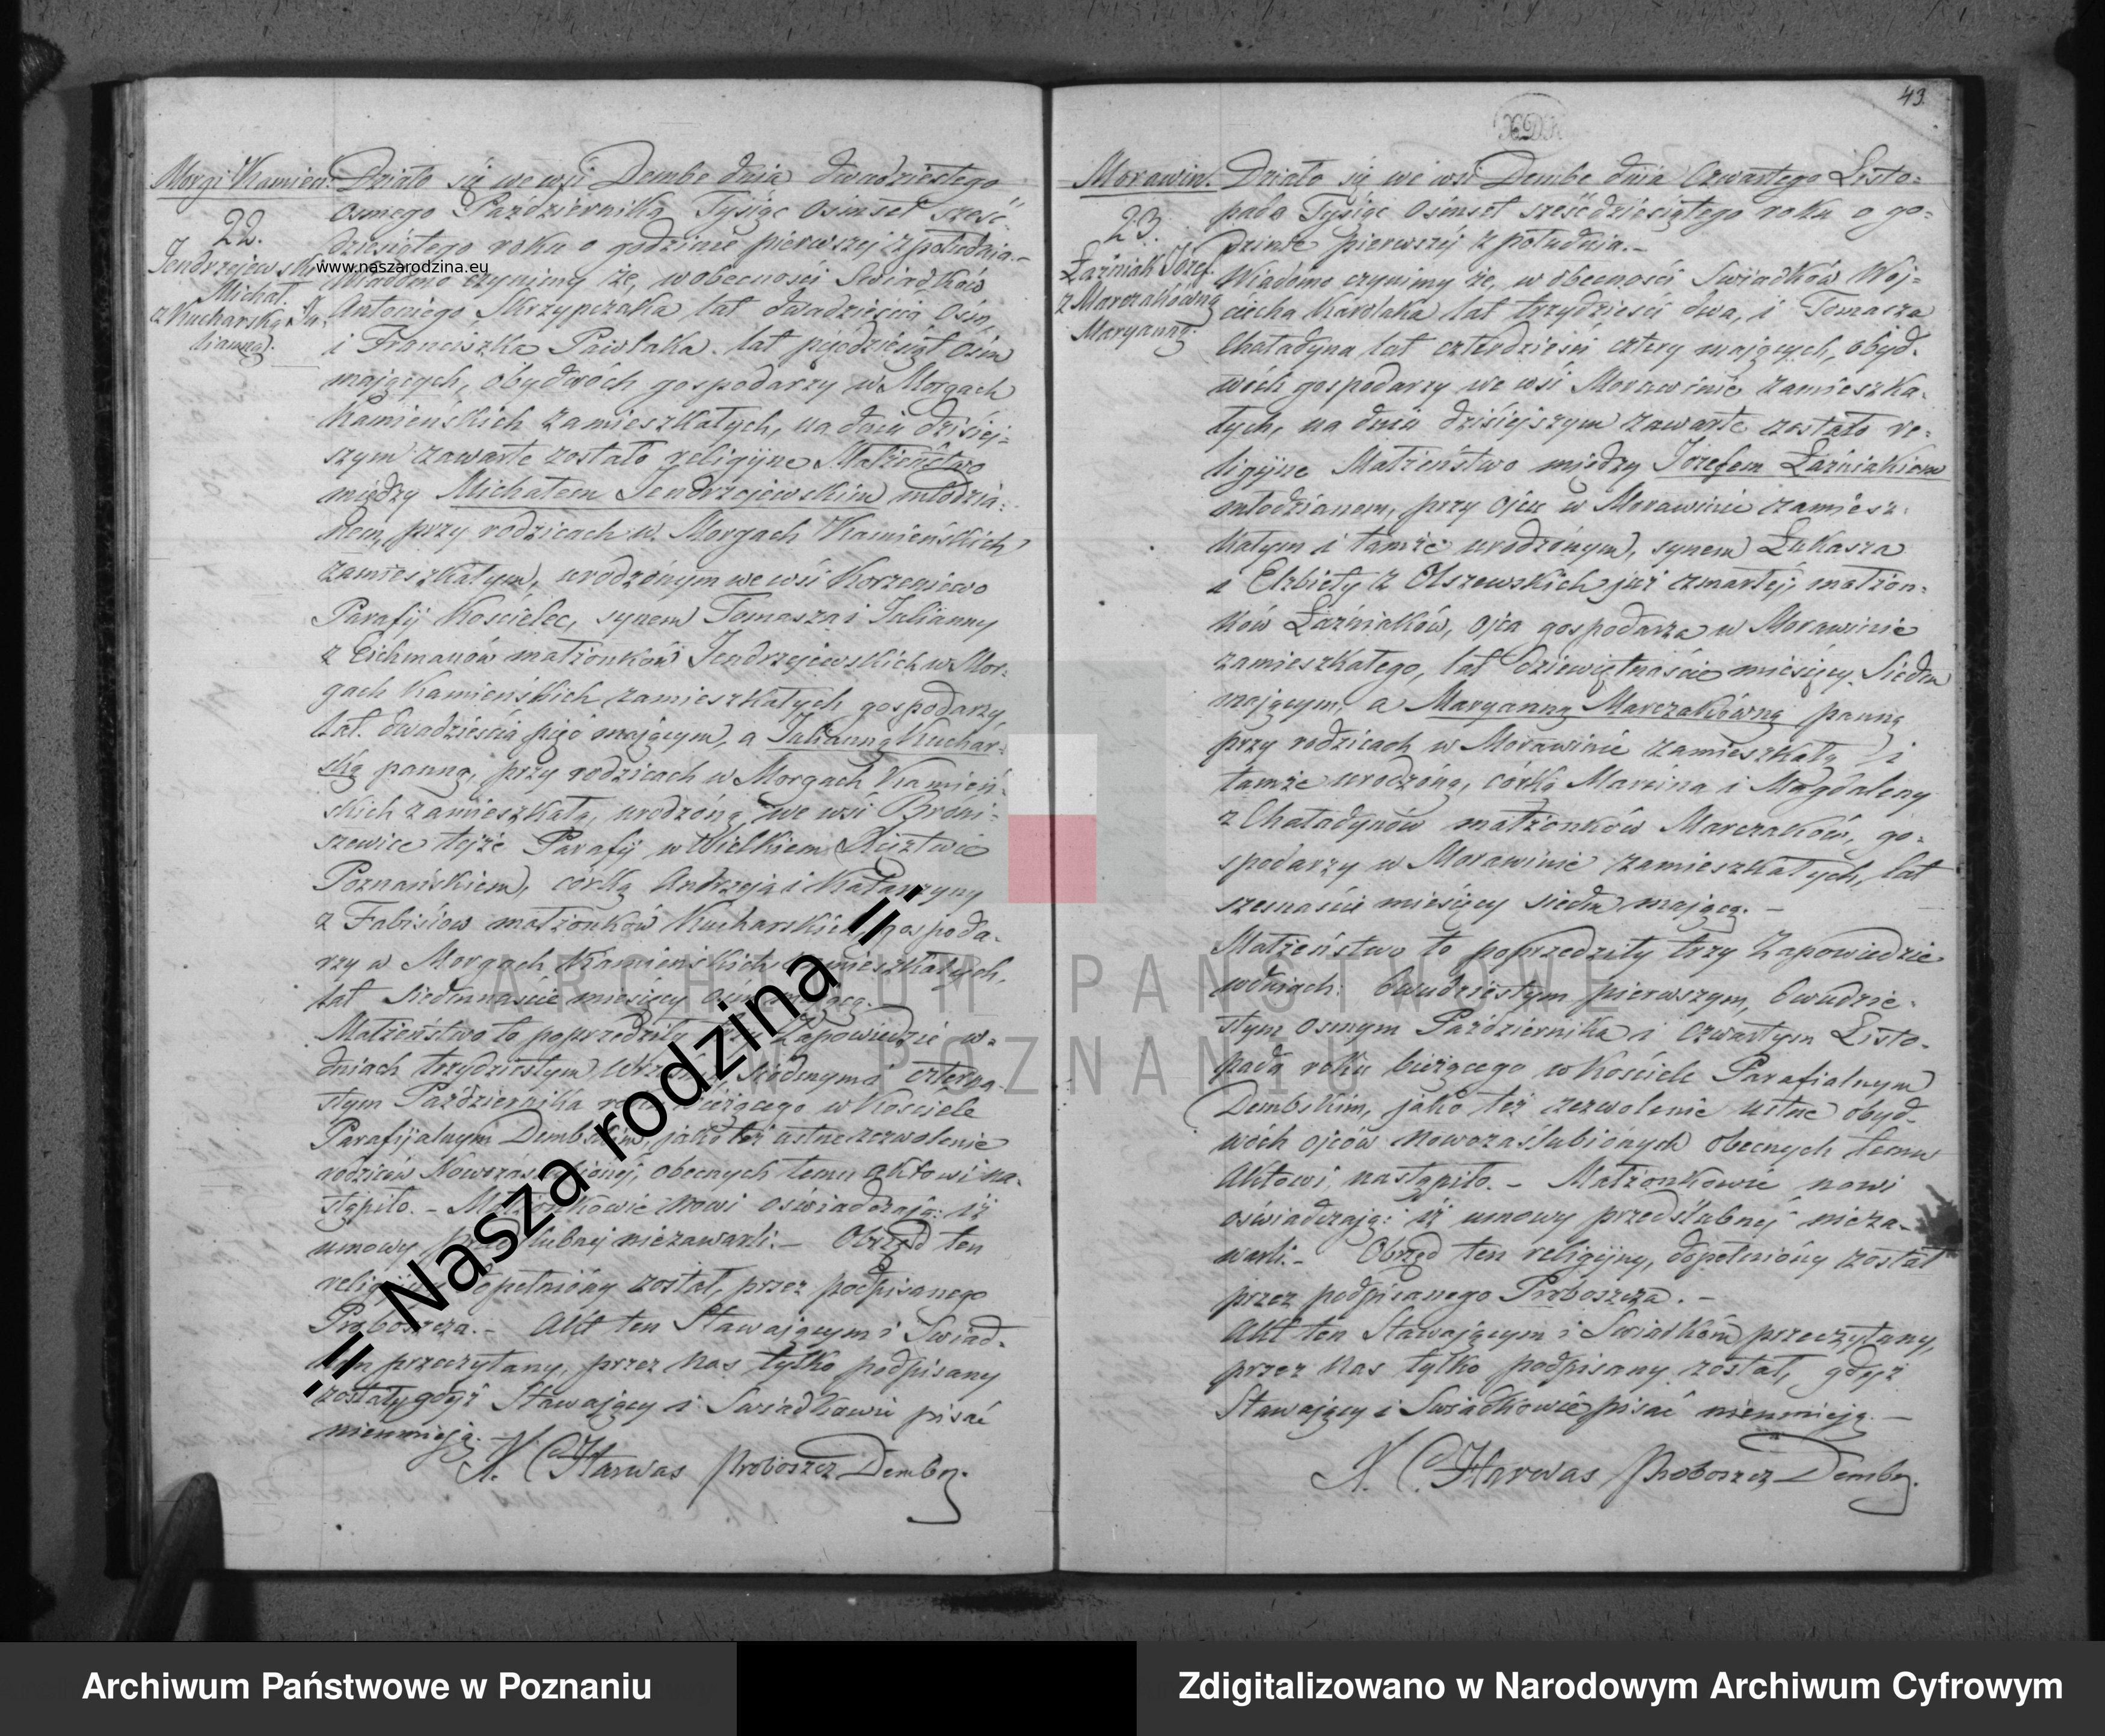 Morgi Kamień:
22.
Jendrzejewski
Michał.
z Kucharską Ju-
lianną.
www.naszarodzina.eu
Działo się we wsi Dembe dnia dwudziestego
osmego Października Tysiąc osimset sześć-
dziesiątego roku o godzinie pierwszej z południa.-
Wiadomo czynimy że, w obecności Swiadków
Antoniego Skrzypczaka lat dwadzieścia osm,
i Franciszka Pawlaka. lat pięćdziesiąt osim
mających, obydwóch gospodarzy w Morgach
Kamieńskich zamieszkałych, na dniu dzisiej-
szym zawarte zostało religijne Małżeństwo
między Michałem Jendrzejewskim młodzia-
nem, przy rodzicach w Morgach Kamieńskich
zamieszkałym, urodzonym we wsi Korzeniewo
Parafij Kościelec, synem Tomasza i Julianny
z Eichmanów małżonków Jendrzejewskich w Mor-
gach Kamieńskich zamieszkałych gospodarzy,
lat. dwadzieścia pięć mającym, a Julianną Kuchar-
ską panną, przy rodzicach w Morgach Kamień-
skich zamieszkałą, urodzoną we wsi Broni-
szewice tejże Parafij w Wielkiem Xięztwie
Poznańskiem, córką Andrzeja i Katarzyny
z Fabisiow małżonków Kucharskich, gospoda-
rzy w Morgach Kamieńskich zamieszkałych,
lat siedmnaście miesięcy osim mającą. -
Małżeństwo to poprzedziły trzy Zapowiedzie w-
dniach trzydziestym Września, siodmym i czterna-
stym Października roku bieżącego w Kościele
Parafijalnym Dembskim, jako też ustne zezwolenie
rodziców Nowozaślubionej, obecnych temu aktowi na-
stąpiło. - Małżonkowie nowi oświadczają: iż
umowy przedślubnej niezawarli. - Obrzęd ten
religijny dopełniony został, przez podpisanego
Proboszcza. - Akt ten Stawającym i Swiad-
kom przeczytany, przez Nas tylko podpisany
został, gdyż Stawający i Swiadkowie pisać
nieumieją. -
X. C. Harwas Proboszcz Demby.
!! Nasza rodzina !!
43.
Morawin.
23.
Łaźniak Józef.
z Marczakówną
Maryanną.
Działo się we wsi Dembe dnia Czwartego Listo-
pada Tysiąc osimset sześćdziesiątego roku o go-
dzinie pierwszej z południa. -
Wiadomo czynimy że, w obecności Swiadków Woj-
ciecha Karolaka lat trzydzieści dwa, i Tomasza
Chaładyna lat czterdzieści cztery mających, obyd-
wóch gospodarzy we wsi Morawinie zamieszka-
łych, na dniu dzisiejszym zawarte zostało re-
ligijne Małżeństwo między Józefem Łaźniakiem
młodzianem, przy ojcu w Morawinie zamiesz-
kałym i tamże urodzonym, synem Łukasza
i Elzbiety z Olszewskich już zmarłej, małżon-
ków Łaźniaków, ojca gospodarza w Morawinie
zamieszkałego, lat dziewiętnaście miesięcy siedm
mającym, a Maryanną Marczakówną panną
przy rodzicach w Morawinie zamieszkałą i
tamże urodzoną, córką Marcina i Magdaleny
z Chaładynów małżonków Marczaków, go-
spodarzy w Morawinie zamieszkałych, lat
szesnaście miesięcy siedm mającą. -
Małżeństwo to poprzedziły trzy Zapowiedzie
w dniach: dwudziestym pierwszym, dwudzie-
stym osmym Października i czwartym Listo-
pada roku bieżącego w Kościele Parafialnym
Dembskim, jako też zezwolenie ustne obyd-
wóch ojców Nowozaślubionych obecnych temu
Aktowi nastąpiło. - Małżonkowie nowi
oświadczają: iż umowy przedślubnej nieza-
warli. - Obrzęd ten religijny, dopełniony został
przez podpisanego Proboszcza. -
Akt ten Stawającym i Swiadkom przeczytany,
przez Nas tylko podpisany został, gdyż
Stawający i Swiadkowie pisać nieumieją. -
X. C. Harwas Proboszcz Demby.
ARCHIWUM PAŃSTWOWE
W POZNANIU
Archiwum Państwowe w Poznaniu
Zdigitalizowano w Narodowym Archiwum Cyfrowym